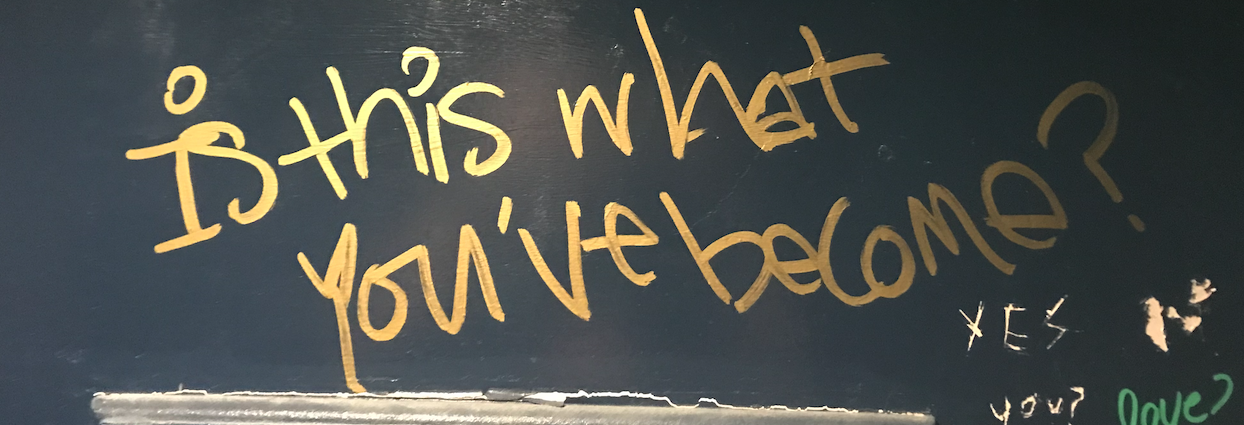 is this what
you've become?
YES
you?
love?